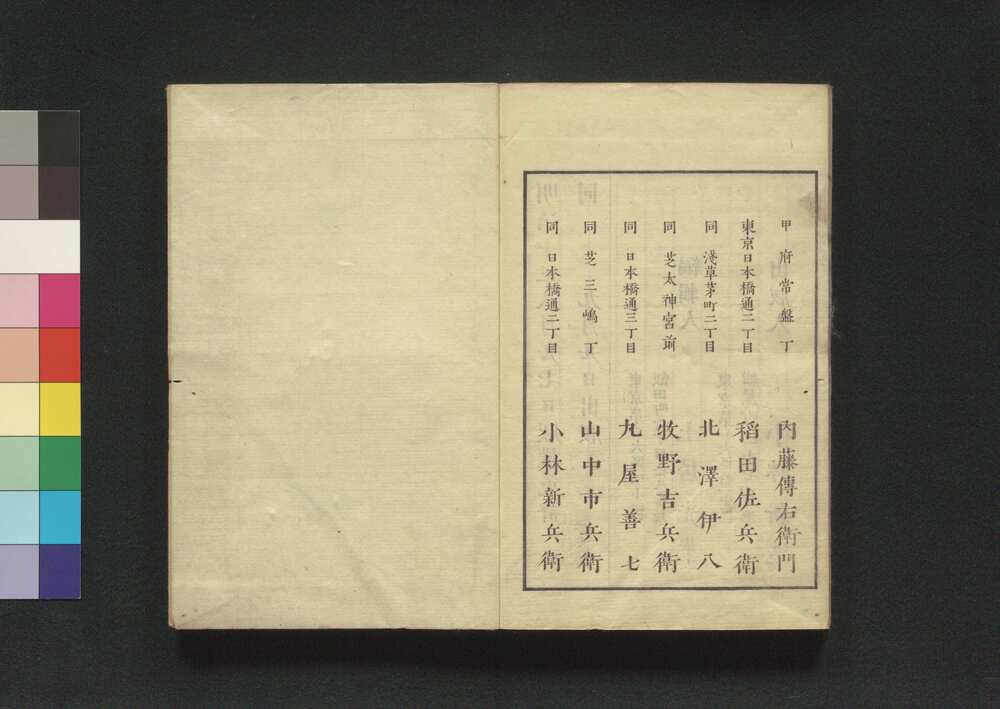 甲府常盤丁 内藤傳右衛門
東京日本橋通二丁目 稲田佐兵衛
同 淺草茅町二丁目 北澤伊八
同 芝太神宮前 牧野吉兵衛
同 日本橋通三丁目 丸屋善七
同 芝三嶋丁 山中市兵衛
同 日本橋通二丁目 小林新兵衛